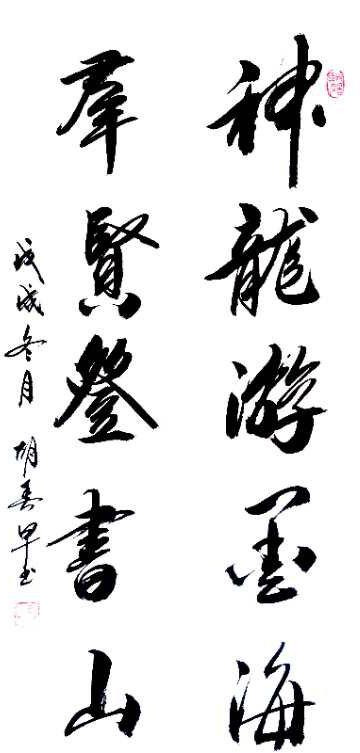 神龍游墨海
羣賢登書山
戊戌冬月 胡春早书